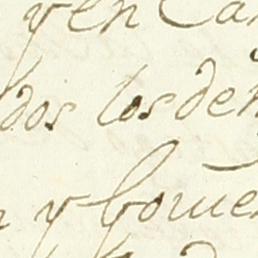 y en Ca
dos los de
y Gover